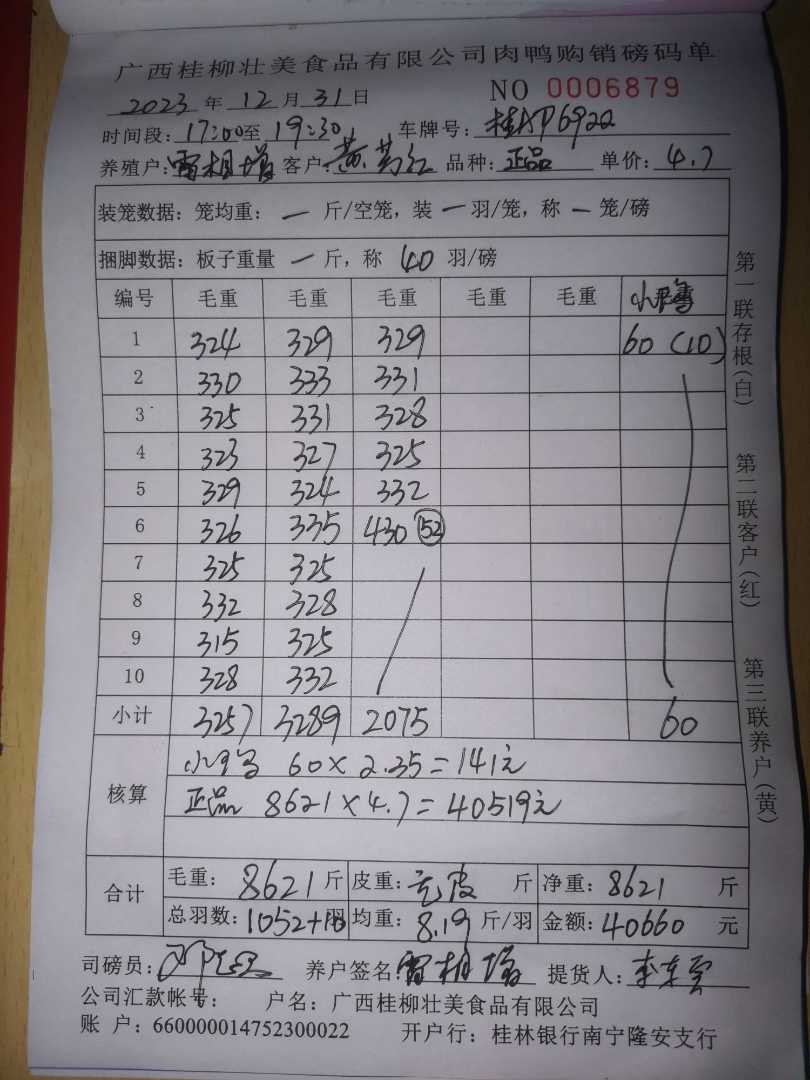 广西桂柳壮美食品有限公司肉鸭购销磅码单
2023年12月31日 NO 0006879
时间段:17:00至19:30 车牌号:桂AP6922
养殖户:雷相增 客户:黄 红 品种:正品 单价:4.7
装笼数据:笼均重:一斤/空笼,装一羽/笼,称一笼/磅
捆脚数据:板子重量一斤,称40羽/磅
编号 毛重 毛重 毛重 毛重 毛重 小鸭
1 324 329 329 60 (10)
2 330 333 331
3 325 331 328
4 323 327 325
5 329 324 332
6 326 335 430 52
7 325 325
8 332 328
9 315 325
10 328 332
小计 3257 3289 2075 60
核算
小鸭 60×2.35=141元
正品 8621×4.7=40519元
合计
毛重:8621斤 皮重:无皮斤 净重:8621斤
总羽数:1052+10羽 均重:8.19斤/羽 金额:40660元
司磅员:邓 养户签名:雷相增 提货人:李东
公司汇款帐号: 户名:广西桂柳壮美食品有限公司
账 户:660000014752300022 开户行:桂林银行南宁隆安支行
第一联存根(白)
第二联客户(红)
第三联养户(黄)